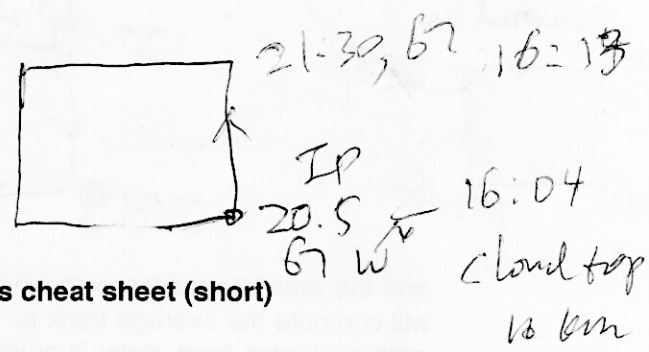 21-30, 67 16:13
IP
20.5
67 W
16:04
cloud top
10 km
s cheat sheet (short)